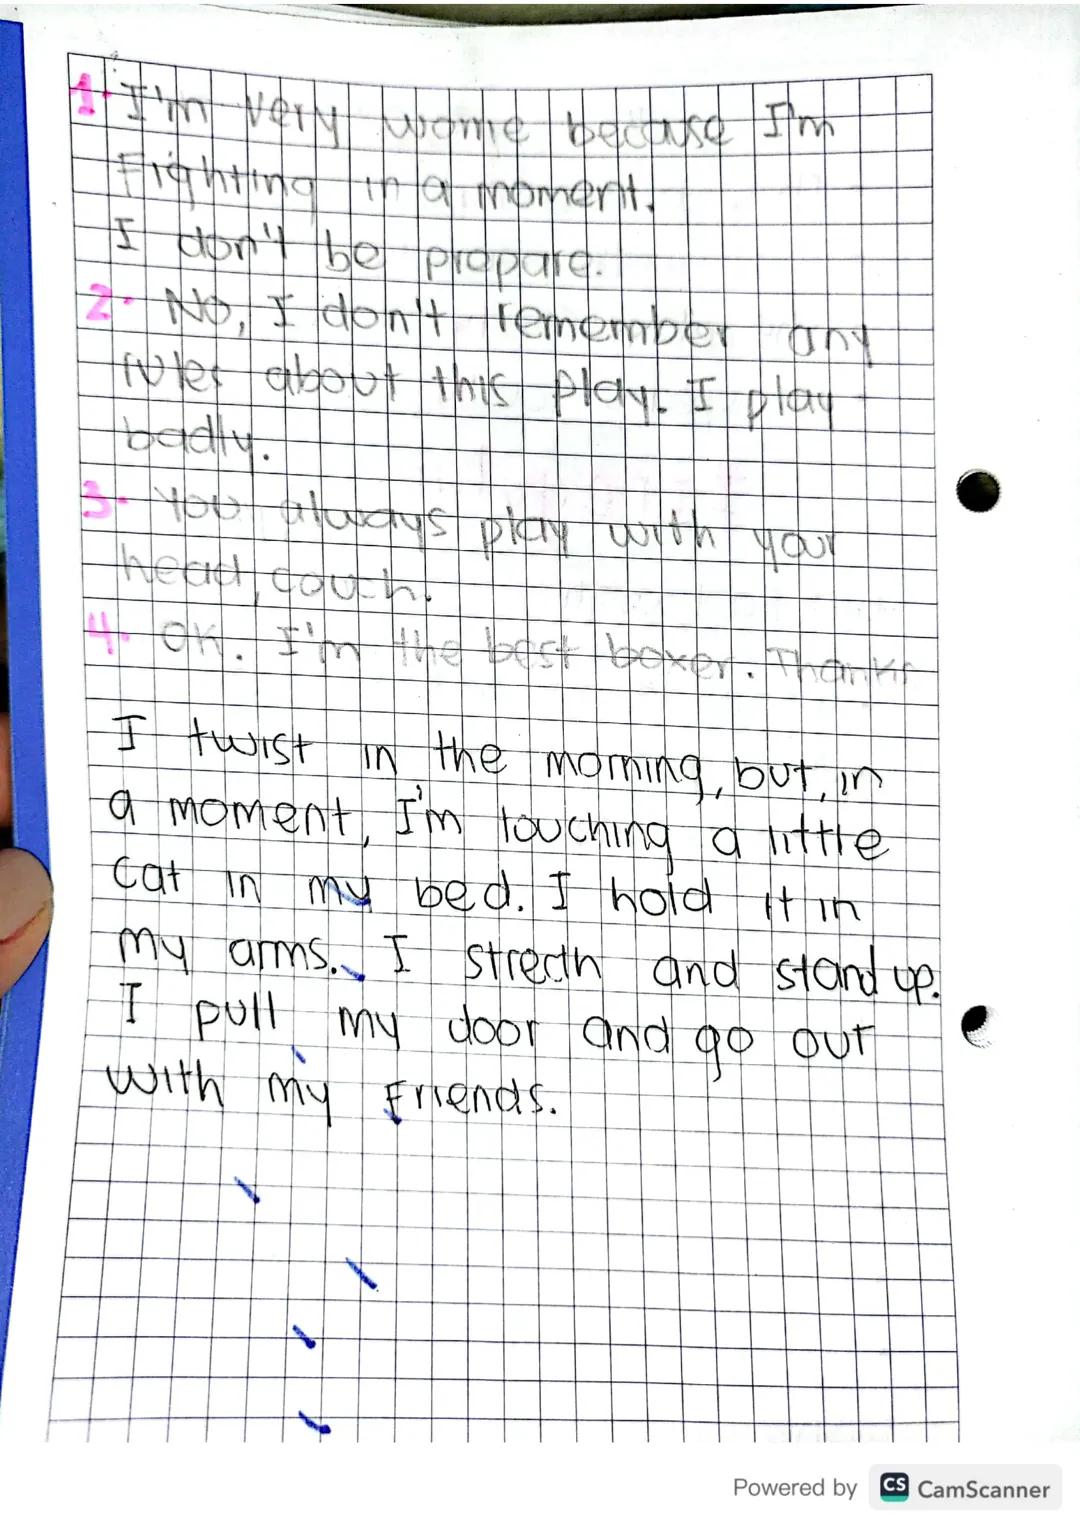 1. I'm very worrie becau se I'm
Fighting in a moment.
I don't be prepare.
2. No, I don't remember any
rules about this play. I play
badly.
3. You always play with your
head, couch.
4. OK. I'm the best boxer. Thanks
I twist in the morning, but, in
a moment, I'm touching a little
cat in my bed. I hold it in
my arms. I strecth and stand up.
I pull my door and go out
with my Friends.
Powered by CS CamScanner